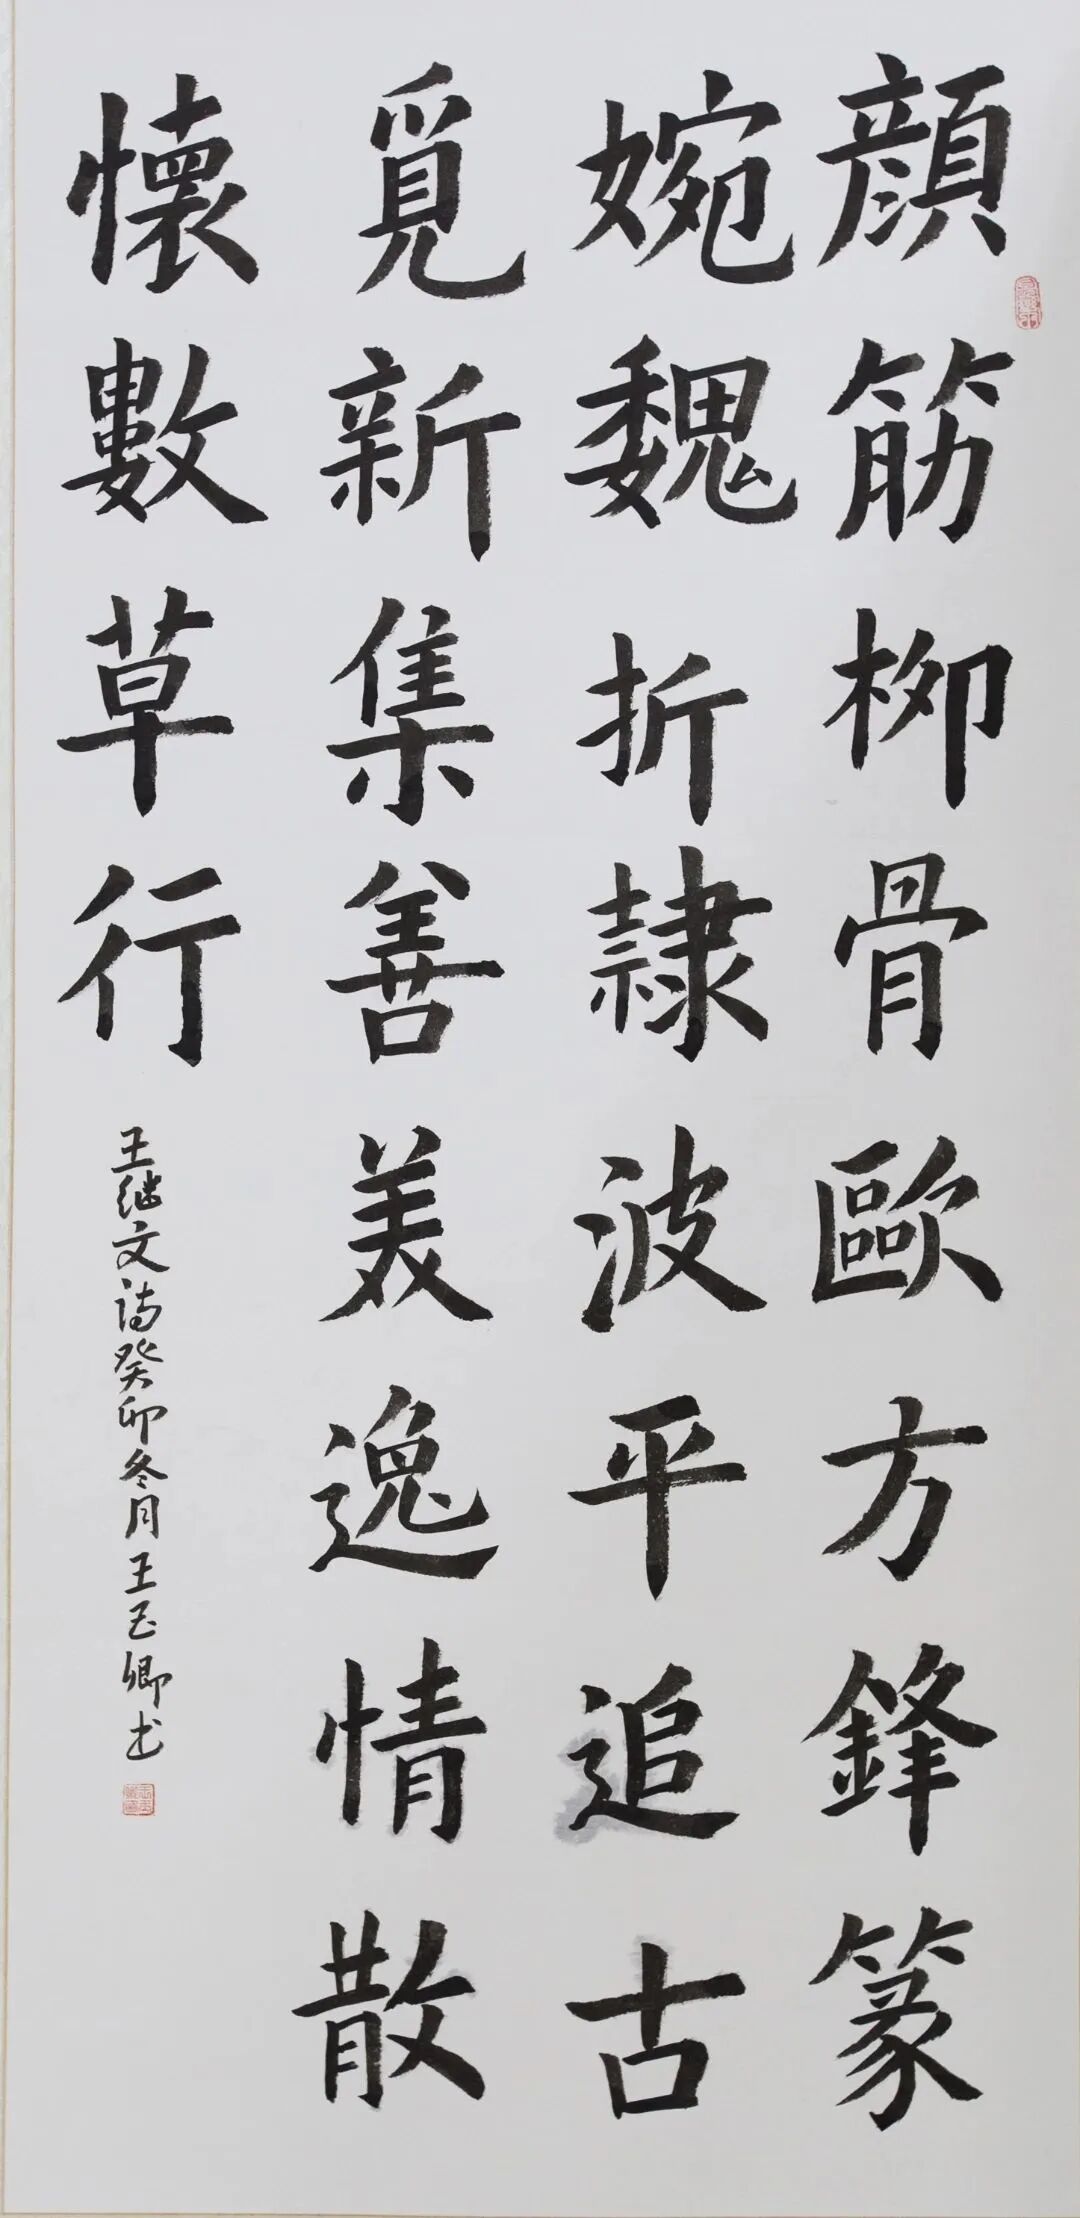 顔筋柳骨歐方鋒篆
婉魏折隷波平追古
覓新集善美逸情散
懷數草行
王继文诗癸卯冬月王玉卿书